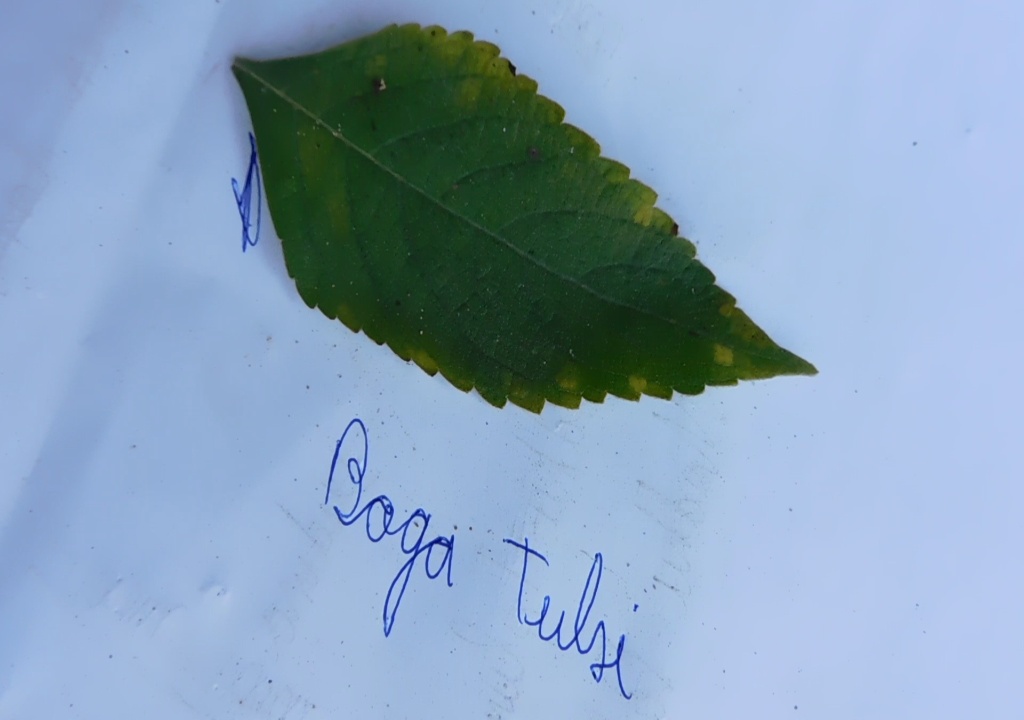 Boga tulsi